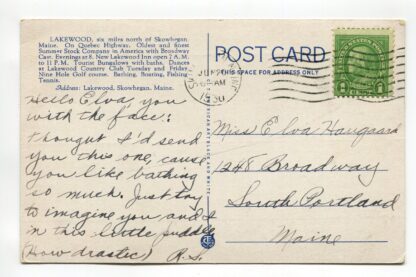 LAKEWOOD, six miles north of Skowhegan,
Maine. On Quebec Highway. Oldest and finest
Summer Stock Company in America with Broadway
Cast. Evenings at 8. New Lakewood Inn open 7 A.M.
to 11 P.M. Tourist Bungalows with baths. Dances
at Lakewood Country Club Tuesday and Friday.
Nine Hole Golf course. Bathing, Boating, Fishing
Tennis.
Address: Lakewood, Skowhegan, Maine.
Hello Elva, you
with the face:
thought I'd send
you this one, cause
you like bathing
so much. Just try
to imagine you and I
in this little puddle
(How drastic) R.S.
POST CARD
THIS SPACE FOR ADDRESS ONLY
AM
1930
Miss Elva Haugaard
1248 Broadway
South Portland
Maine